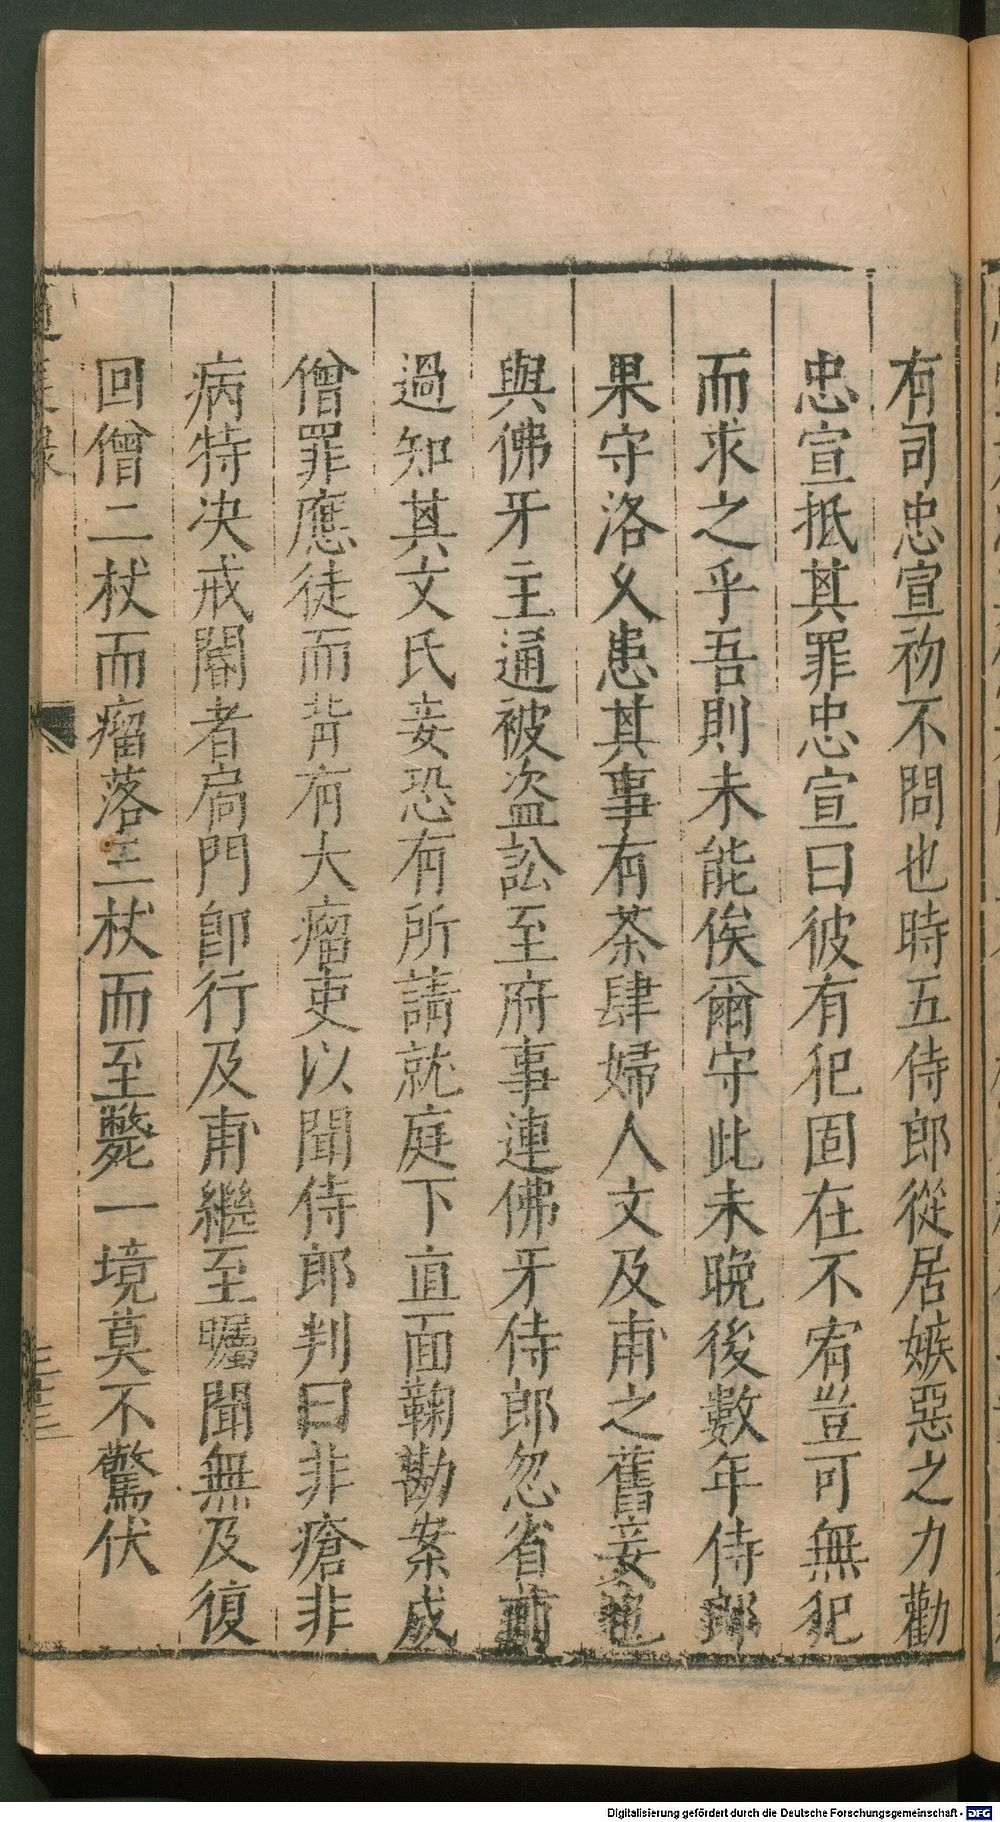 有司忠宣初不問也時五侍郎從居嫉惡之力勸
忠宣抵其罪忠宣曰彼有犯固在不宥豈可無犯
而求之乎吾則未能俟爾守此未晚後數年侍郎
果守洛乂患其事有茶肆婦人文及甫之舊妾也
與佛牙主通被盜訟至府事連佛牙侍郎忽省前
過知其文氏妾恐有所請就庭下直面鞠勘案成
僧罪應徒而背有大瘤吏以聞侍郎判曰非瘡非
病特决戒閽者扃門卽行及甫繼至囑聞無及復
回僧二杖而瘤落三杖而至斃一境莫不驚伏
三十三
Digitalisierung gefördert durch die Deutsche Forschungsgemeinschaft - DFG